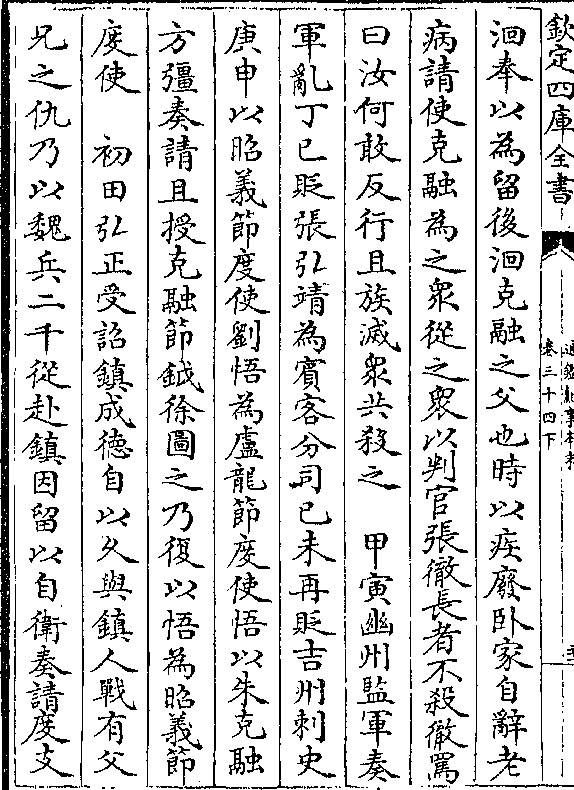 欽定四庫全書
通鑑紀事本末
卷三十四下
洄奉以為留後洄克融之父也時以疾廢卧家自辭老
病請使克融為之衆從之衆以判官張徹長者不殺徹罵
曰汝何敢反行且族滅衆共殺之　甲寅幽州監軍奏
軍亂丁巳貶張弘靖為賓客分司己未再貶吉州刺史
庚申以昭義節度使劉悟為盧龍節度使悟以朱克融
方彊奏請且授克融節鉞徐圖之乃復以悟為昭義節
度使　初田弘正受詔鎮成德自以久與鎮人戰有父
兄之仇乃以魏兵二千從赴鎮因留以自衛奏請度支